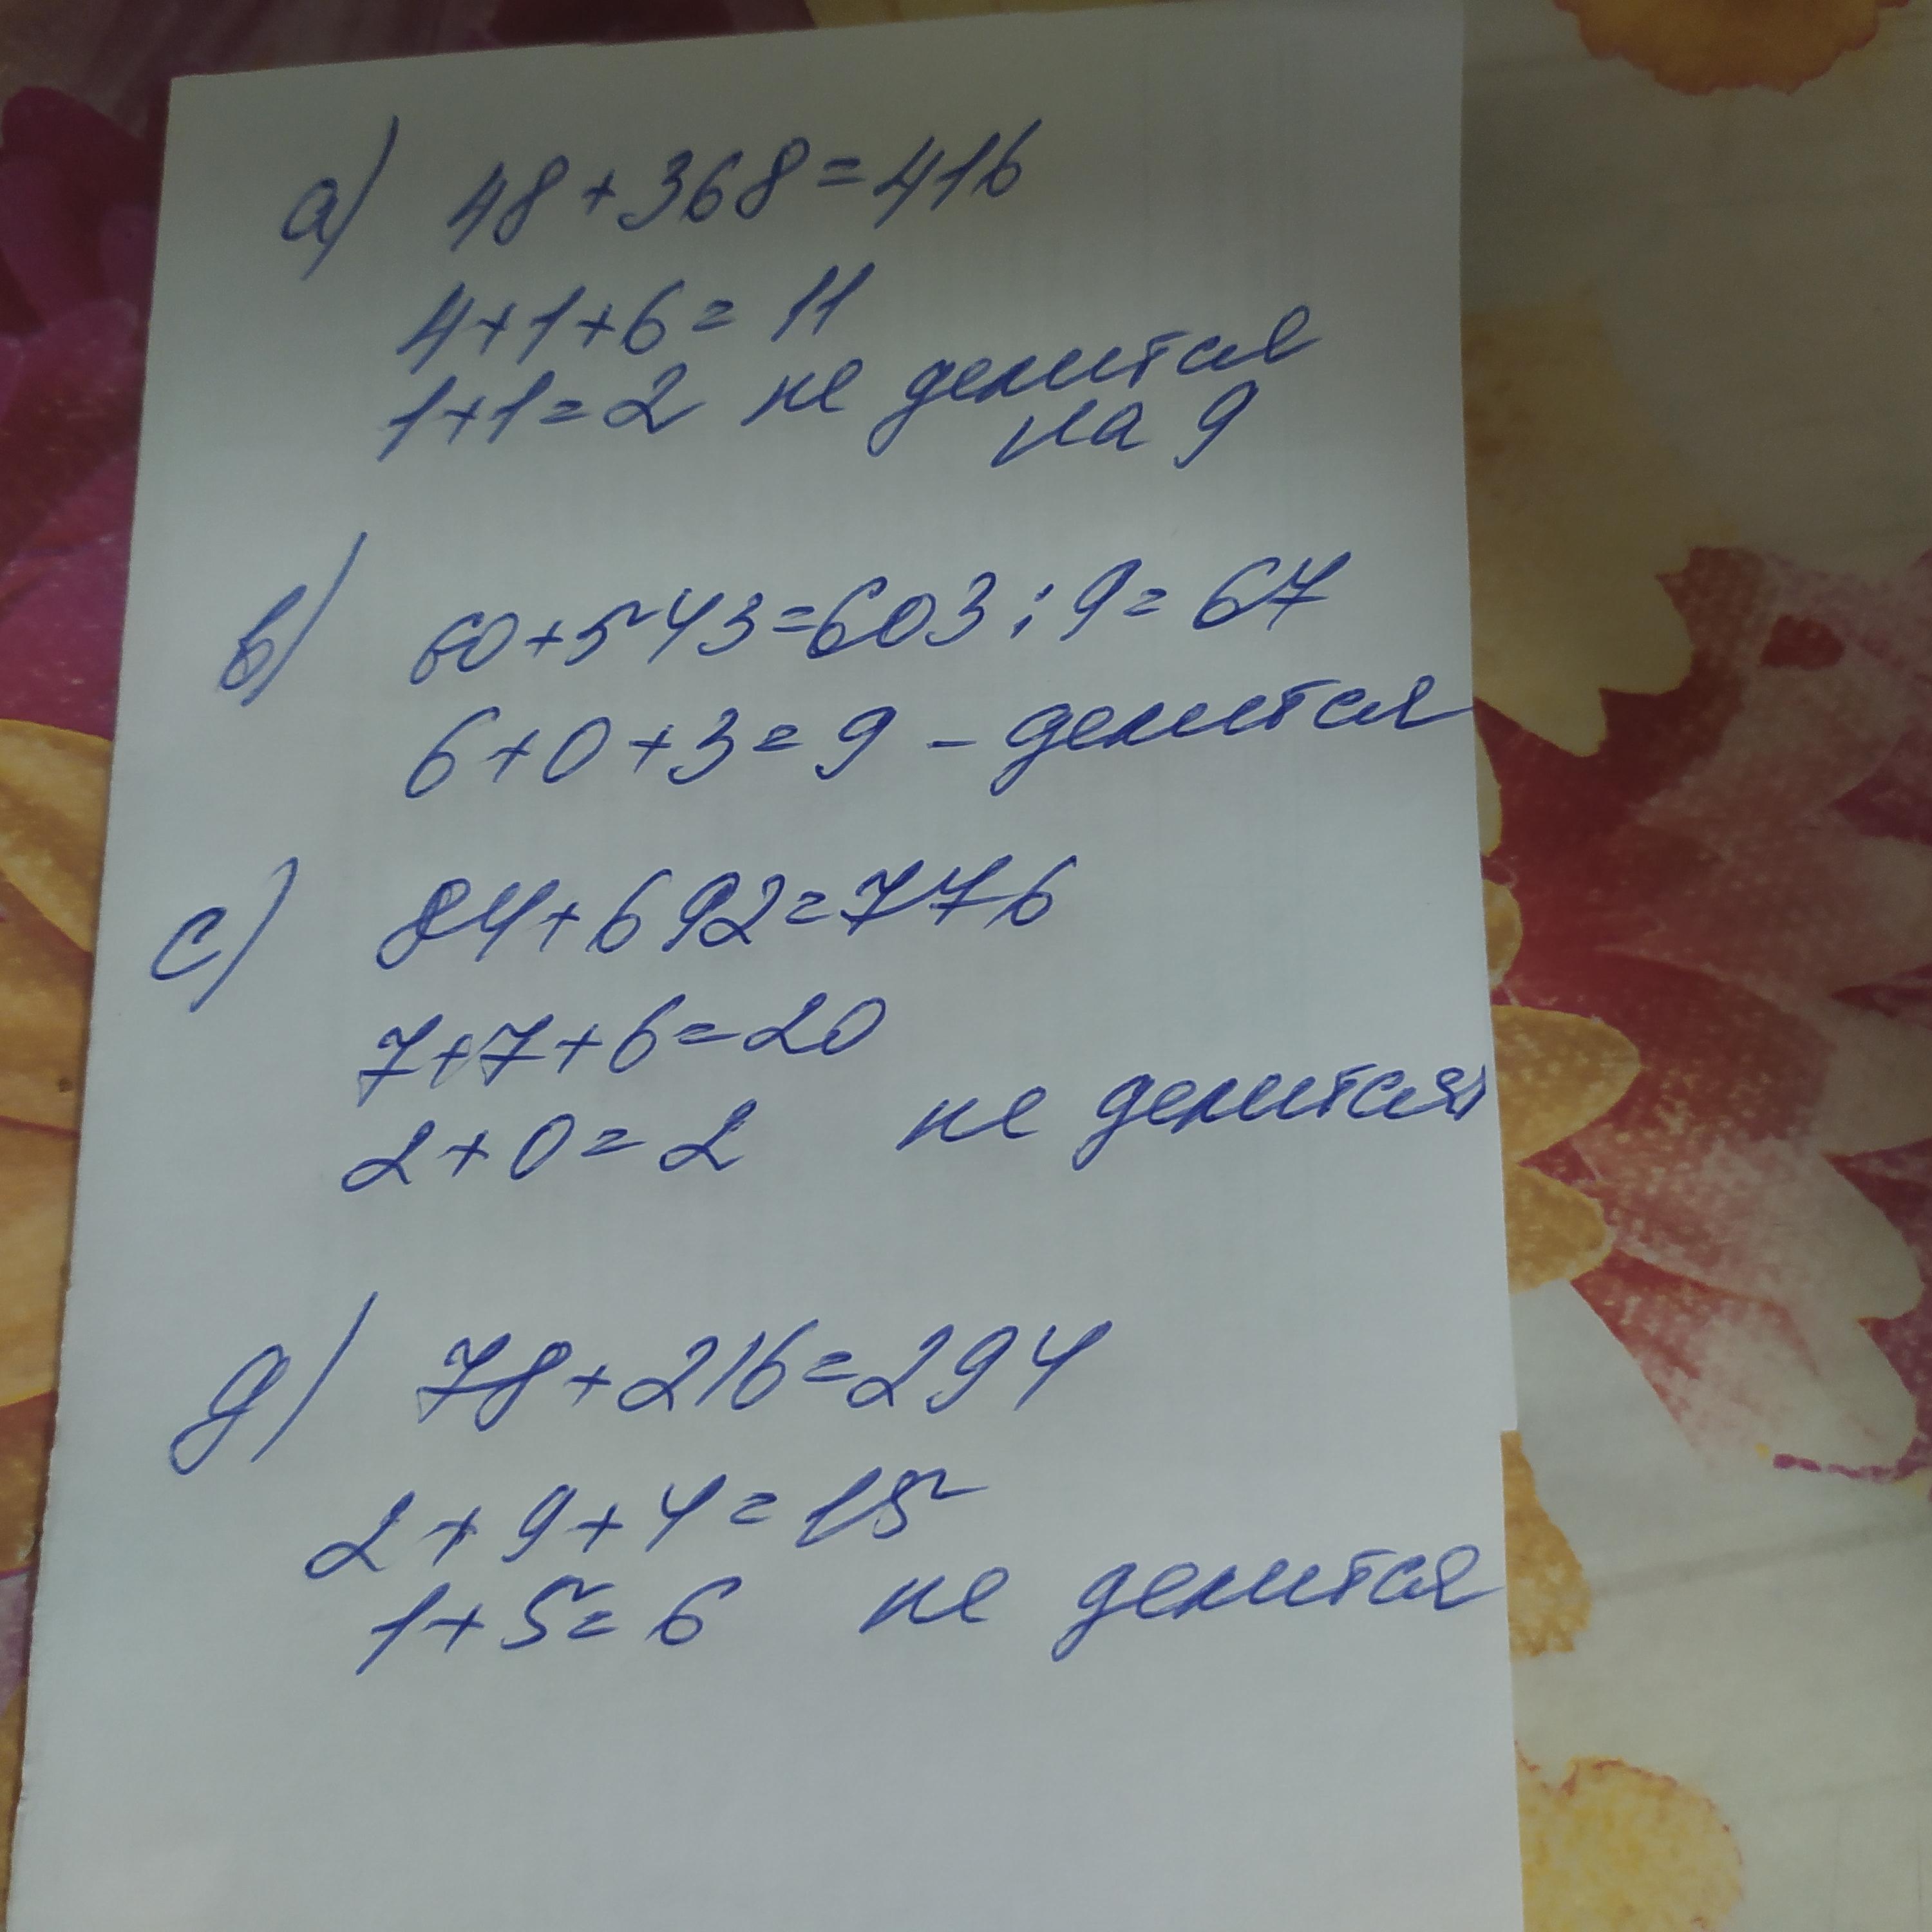 а) 48+368=416
4+1+6=11
1+1=2 не делится
на 9
в) 60+543=603:9=67
6+0+3=9 - делится
с) 84+692=776
7+7+6=20
2+0=2 не делится
д) 78+216=294
2+9+4=15
1+5=6 не делится